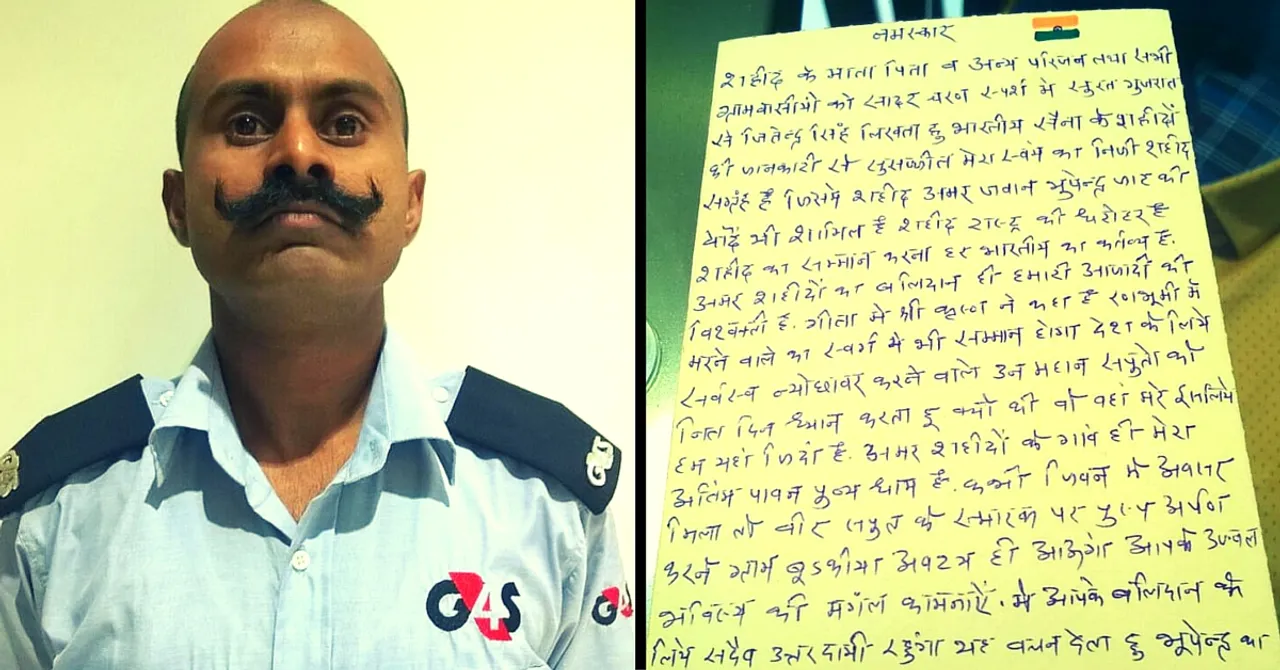 G4S
G4S
G4S
नमस्कार
शहीद के माता पिता व अन्य परिजन तथा सभी
ग्रामवासीयो को सादर चरण स्पर्श मे सुरत गुजरात
से जितेन्द्र सिंह लिखता हु भारतीय सैना के शहीदों
की जानकारी से सुसज्जीत मेरा स्वंय का निजी शहीद
संग्रह है जिसमे शहीद अमर जवान भुपेन्द्र जाट की
यादें भी शामिल है शहीद राष्ट्र की धरोहर है
शहीद का सम्मान करना हर भारतीय का कर्तव्य है.
अमर शहीदों का बलिदान ही हमारी आजादी की
है. गीता मे श्री कृष्ण ने कहा है रणभूमी मे
मरने वाले का स्वर्ग मे भी सम्मान होगा देश के लिये
सर्वस्व न्योछावर करने वाले उन महान सपुतो को
नित दिन ध्यान करता हु क्यो की वो वहां मरे इसलिये
हम यहां जिंदा है. अमर शहीदों के गांव ही मेरा
अतिंम पावन पुन्य धाम है. कभी जिवन मे अवसर
मिला तो वीर सपुत के स्मारक पर पुस्प अर्पण
करने ग्राम बुडकीया अवश्य ही आऊंगा आपके उज्वल
भविष्य की मंगल कामनाऐं. मे आपके बलिदान के
लिये सदैव उत्तरदायी रहुंगा यह वचन देता हु भूपेन्द्र का